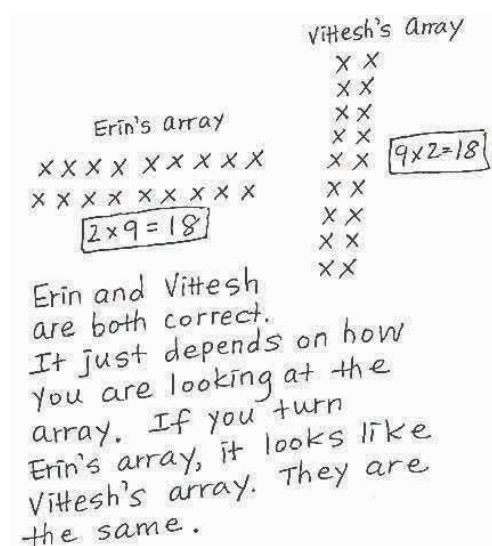 Vittesh's Array
X X
X X
X X
X X
X X
X X
X X
X X
X X
9x2=18
Erin's array
X X X X X X X X X
X X X X X X X X X
2x9=18
Erin and Vittesh
are both correct.
It just depends on how
you are looking at the
array. If you turn
Erin's array, it looks like
Vittesh's array. They are
the same.